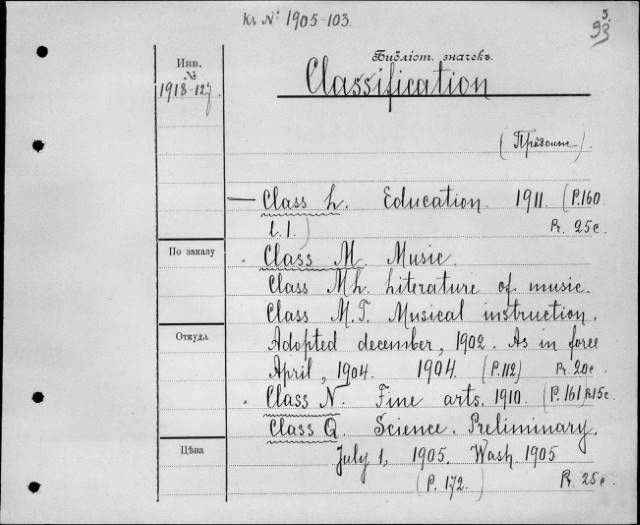 Кх № 1905-103.
5.
93
Инв.
№
1918-127.
Библіот. значекъ.
Classification
— Class L. Education. 1911. (P. 160
l. l.) Pr. 25 c.
По заказу
Class M. Music.
Class ML. Literature of music.
Class M.T. Musical instruction.
Откуда
Adopted december, 1902. As in force
April, 1904. 1904. (P. 112) Pr. 20c
Class N. Fine arts. 1910. (P. 161) Pr. 15c.
Class Q. Science. Preliminary.
Цѣна
July 1, 1905. Wash. 1905
(P. 172.) Pr. 25 c.